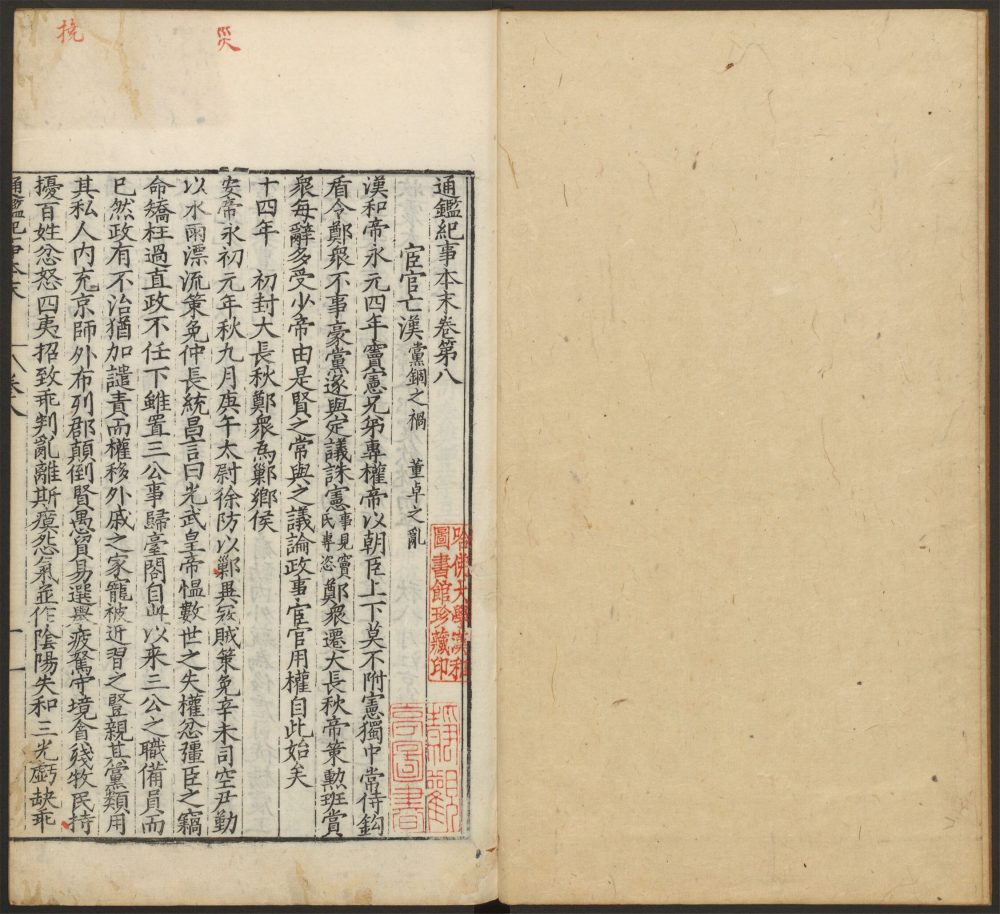 災
撓
通鑑紀事本末卷第八
宦官亡漢 黨錮之禍 董卓之亂
漢和帝永元四年竇憲兄弟專權帝以朝臣上下莫不附憲獨中常侍鉤
盾令鄭衆不事豪黨遂與定議誅憲事見竇氏專恣鄭衆遷大長秋帝策勲班賞
衆每辭多受少帝由是賢之常與之議論政事宦官用權自此始矣
十四年 初封大長秋鄭衆為鄛鄉侯
安帝永初元年秋九月庚午太尉徐防以災異寇賊策免辛未司空尹勤
以水雨漂流策免仲長統昌言曰光武皇帝愠數世之失權忿彊臣之竊
命矯枉過直政不任下雖置三公事歸臺閣自此以来三公之職備員而
已然政有不治猶加譴責而權移外戚之家寵被近習之豎親其黨類用
其私人内充京師外布列郡顛倒賢愚貿易選舉疲駑守境貪殘牧民持
擾百姓忿怒四夷招致乖判亂離斯瘼怨氣並作陰陽失和三光虧缺乖
通鑑紀事本末 卷八 一
哈佛大學漢和
圖書館珍藏印
圖書